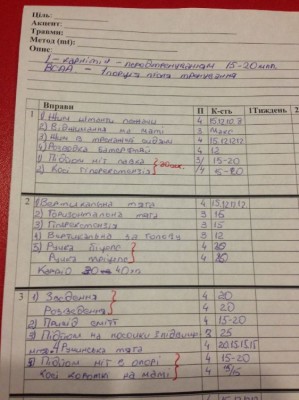 Ціль:
Акцент:
Травми:
Метод (mt):
Опис:
L-карнітин - перед тренуванням 15-20 мин
BCAA - 1 порція після тренування
Вправи П К-сть 1Тиждень 2
1 1) Жим штанги лежачи 4 15.12.10.8
2) Віджимання на маті 3 Макс
3) Жим в тренажері сидячи 4 15.12.12.12
4) Розводка батерфляй 4 12
1) Підйом ніг лежа 3/ 15-20
2) Косі гіперекстензія /4 15-20
2 1) Вертикальна тяга 4 15.12.12.12
2) Горизонтальна тяга 3 15
3) Гіперекстензія 3 15
4) Вертикальна за голову 3 12
5) Ручка біцепс 4
Ручка трицепс 4
Кардіо 40 мин
3 1) Зведення 4 20
Розведення 4 20
2) Присід сміт 4 15-20
3) Підйом на носочки з підвищ 3 25
4) Румунська тяга 4 20.15.15.15
5) Підйом ніг в опорі 4 15-20
Косі короткі на маті 4